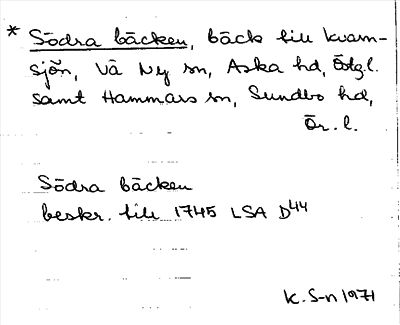 * Södra bäcken, bäck till Kvarn-
sjön, Vä Ny sn, Aska hd, Ötgl.
samt Hammars sn, Sundbo hd,
Ör. l.
Södra bäcken
beskr. till 1745 LSA D44
K. S-n 1971